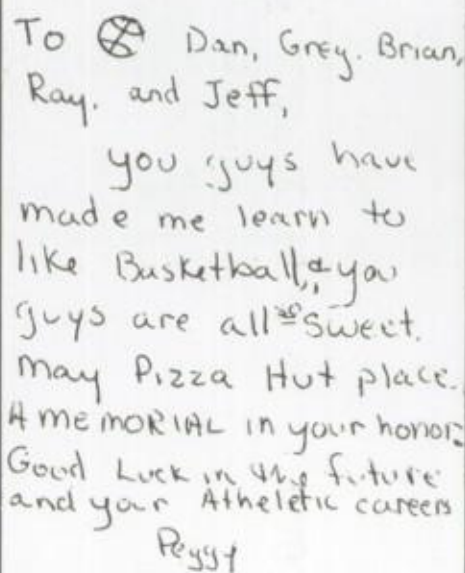 To Dan, Grey, Brian,
Ray, and Jeff,
you guys have
made me learn to
like Busketball, & you
guys are all so sweet.
May Pizza Hut place
A MEMORIAL in your honor.
Good Luck in the future
and your Atheletic careers
Peggy